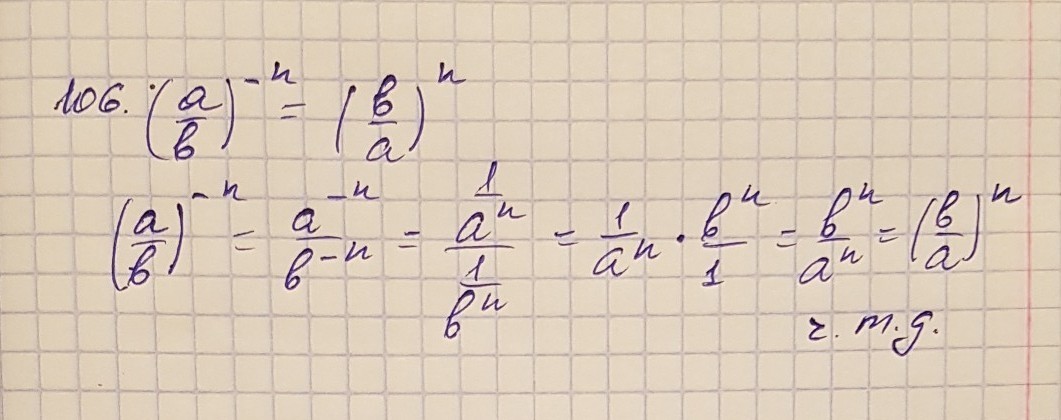 106. (a/b)^-n = (b/a)^n
(a/b)^-n = a^-n/b^-n = (1/a^n)/(1/b^n) = 1/a^n · b^n/1 = b^n/a^n = (b/a)^n
ч. т.д.